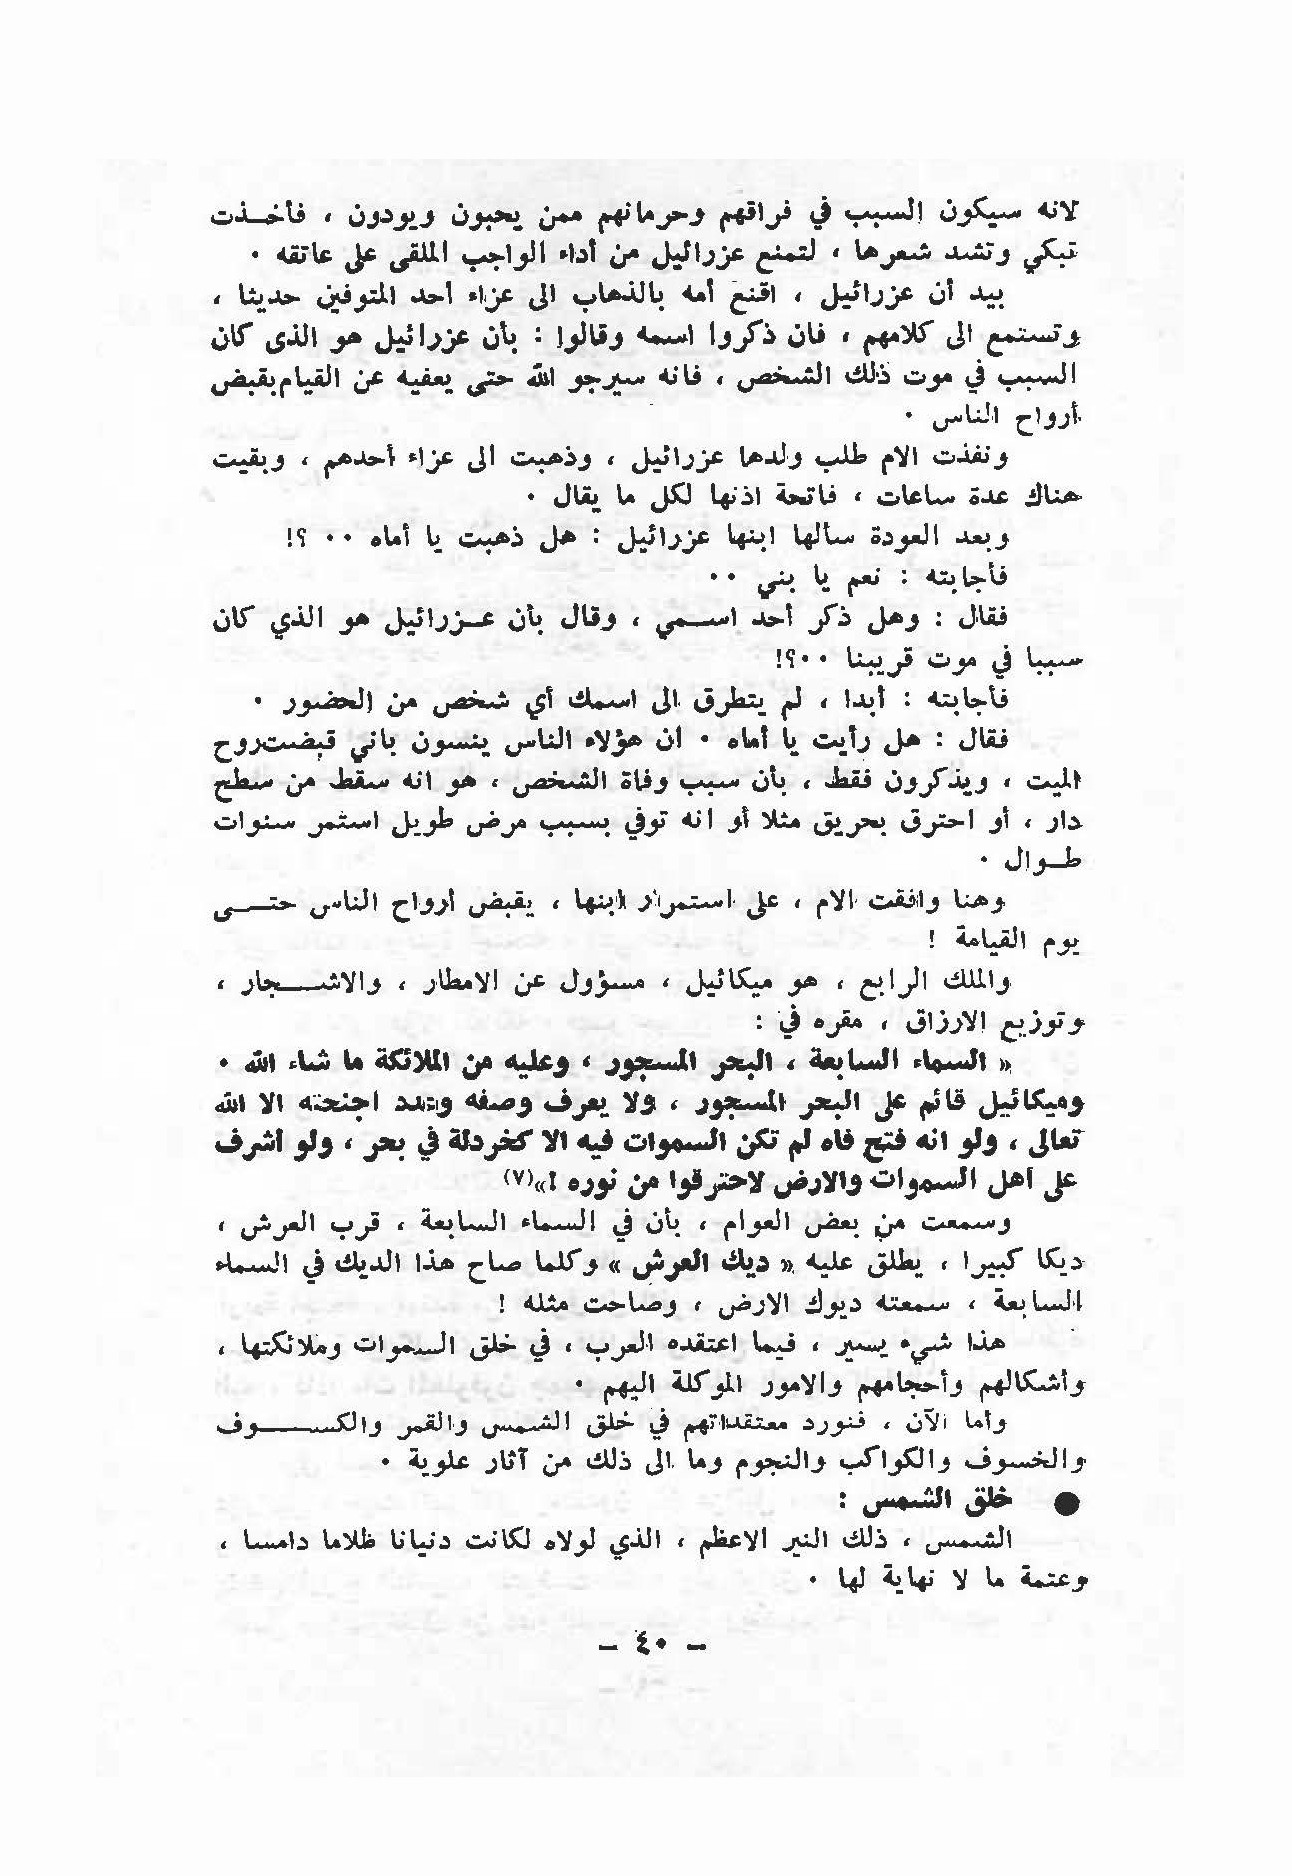 لانه سيكون السبب في فراقهم وحرمانهم ممن يحبون ويودون ، فأخـذت
تبكي وتشد شعرها ، لتمنع عزرائيل من أداء الواجب الملقى على عاتقه ٠
بيد أن عزرائيل ، اقنع أمه بالذهاب الى عزاء أحد المتوفين حديثا ،
وتستمع الى كلامهم ، فان ذكروا اسمه وقالوا : بأن عزرائيل هو الذى كان
السبب في موت ذلك الشخص ، فانه سيرجو الله حتى يعفيه عن القيام بقبض
أرواح الناس ٠
ونفذت الام طلب ولدها عزرائيل ، وذهبت الى عزاء أحدهم ، وبقيت
هناك عدة ساعات ، فاتحة اذنها لكل ما يقال ٠
وبعد العودة سألها ابنها عزرائيل : هل ذهبت يا أماه ٠٠ ؟!
فأجابته : نعم يا بني ٠٠
فقال : وهل ذكر أحد اسـمي ، وقال بأن عـزرائيل هو الذي كان
سببا في موت قريبنا ٠٠؟!
فأجابته : أبدا ، لم يتطرق الى اسمك أي شخص من الحضور ٠
فقال : هل رأيت يا أماه ٠ ان هؤلاء الناس ينسون باني قبضت روح
الميت ، ويذكرون فقط ، بأن سبب وفاة الشخص ، هو انه سقط من سطح
دار ، أو احترق بحريق مثلا أو انه توفي بسبب مرض طويل استمر سنوات
طـوال ٠
وهنا وافقت الام ، على استمرار ابنها ، يقبض أرواح الناس حتـــى
يوم القيامة !
والملك الرابع ، هو ميكائيل ، مسؤول عن الامطار ، والاشـــجار ،
وتوزيع الارزاق ، مقره في :
« السماء السابعة ، البحر المسجور ، وعليه من الملائكة ما شاء الله ٠
وميكائيل قائم على البحر المسجور ، ولا يعرف وصفه وعدد اجنحته الا الله
تعالى ، ولو انه فتح فاه لم تكن السموات فيه الا كخردلة في بحر ، ولو أشرف
على أهل السموات والارض لاحترقوا من نوره !»(٧)
وسمعت من بعض العوام ، بأن في السماء السابعة ، قرب العرش ،
ديكا كبيرا ، يطلق عليه « ديك العرش » وكلما صاح هذا الديك في السماء
السابعة ، سمعته ديوك الارض ، وصاحت مثله !
هذا شيء يسير ، فيما اعتقده العرب ، في خلق السموات وملائكتها ،
وأشكالهم وأحجامهم والامور الموكلة اليهم ٠
وأما الآن ، فنورد معتقداتهم في خلق الشمس والقمر والكســـوف
والخسوف والكواكب والنجوم وما الى ذلك من آثار علوية ٠
● خلق الشمس :
الشمس ، ذلك النير الاعظم ، الذي لولاه لكانت دنيانا ظلاما دامسا ،
وعتمة ما لا نهاية لها ٠
– ٤٠ –